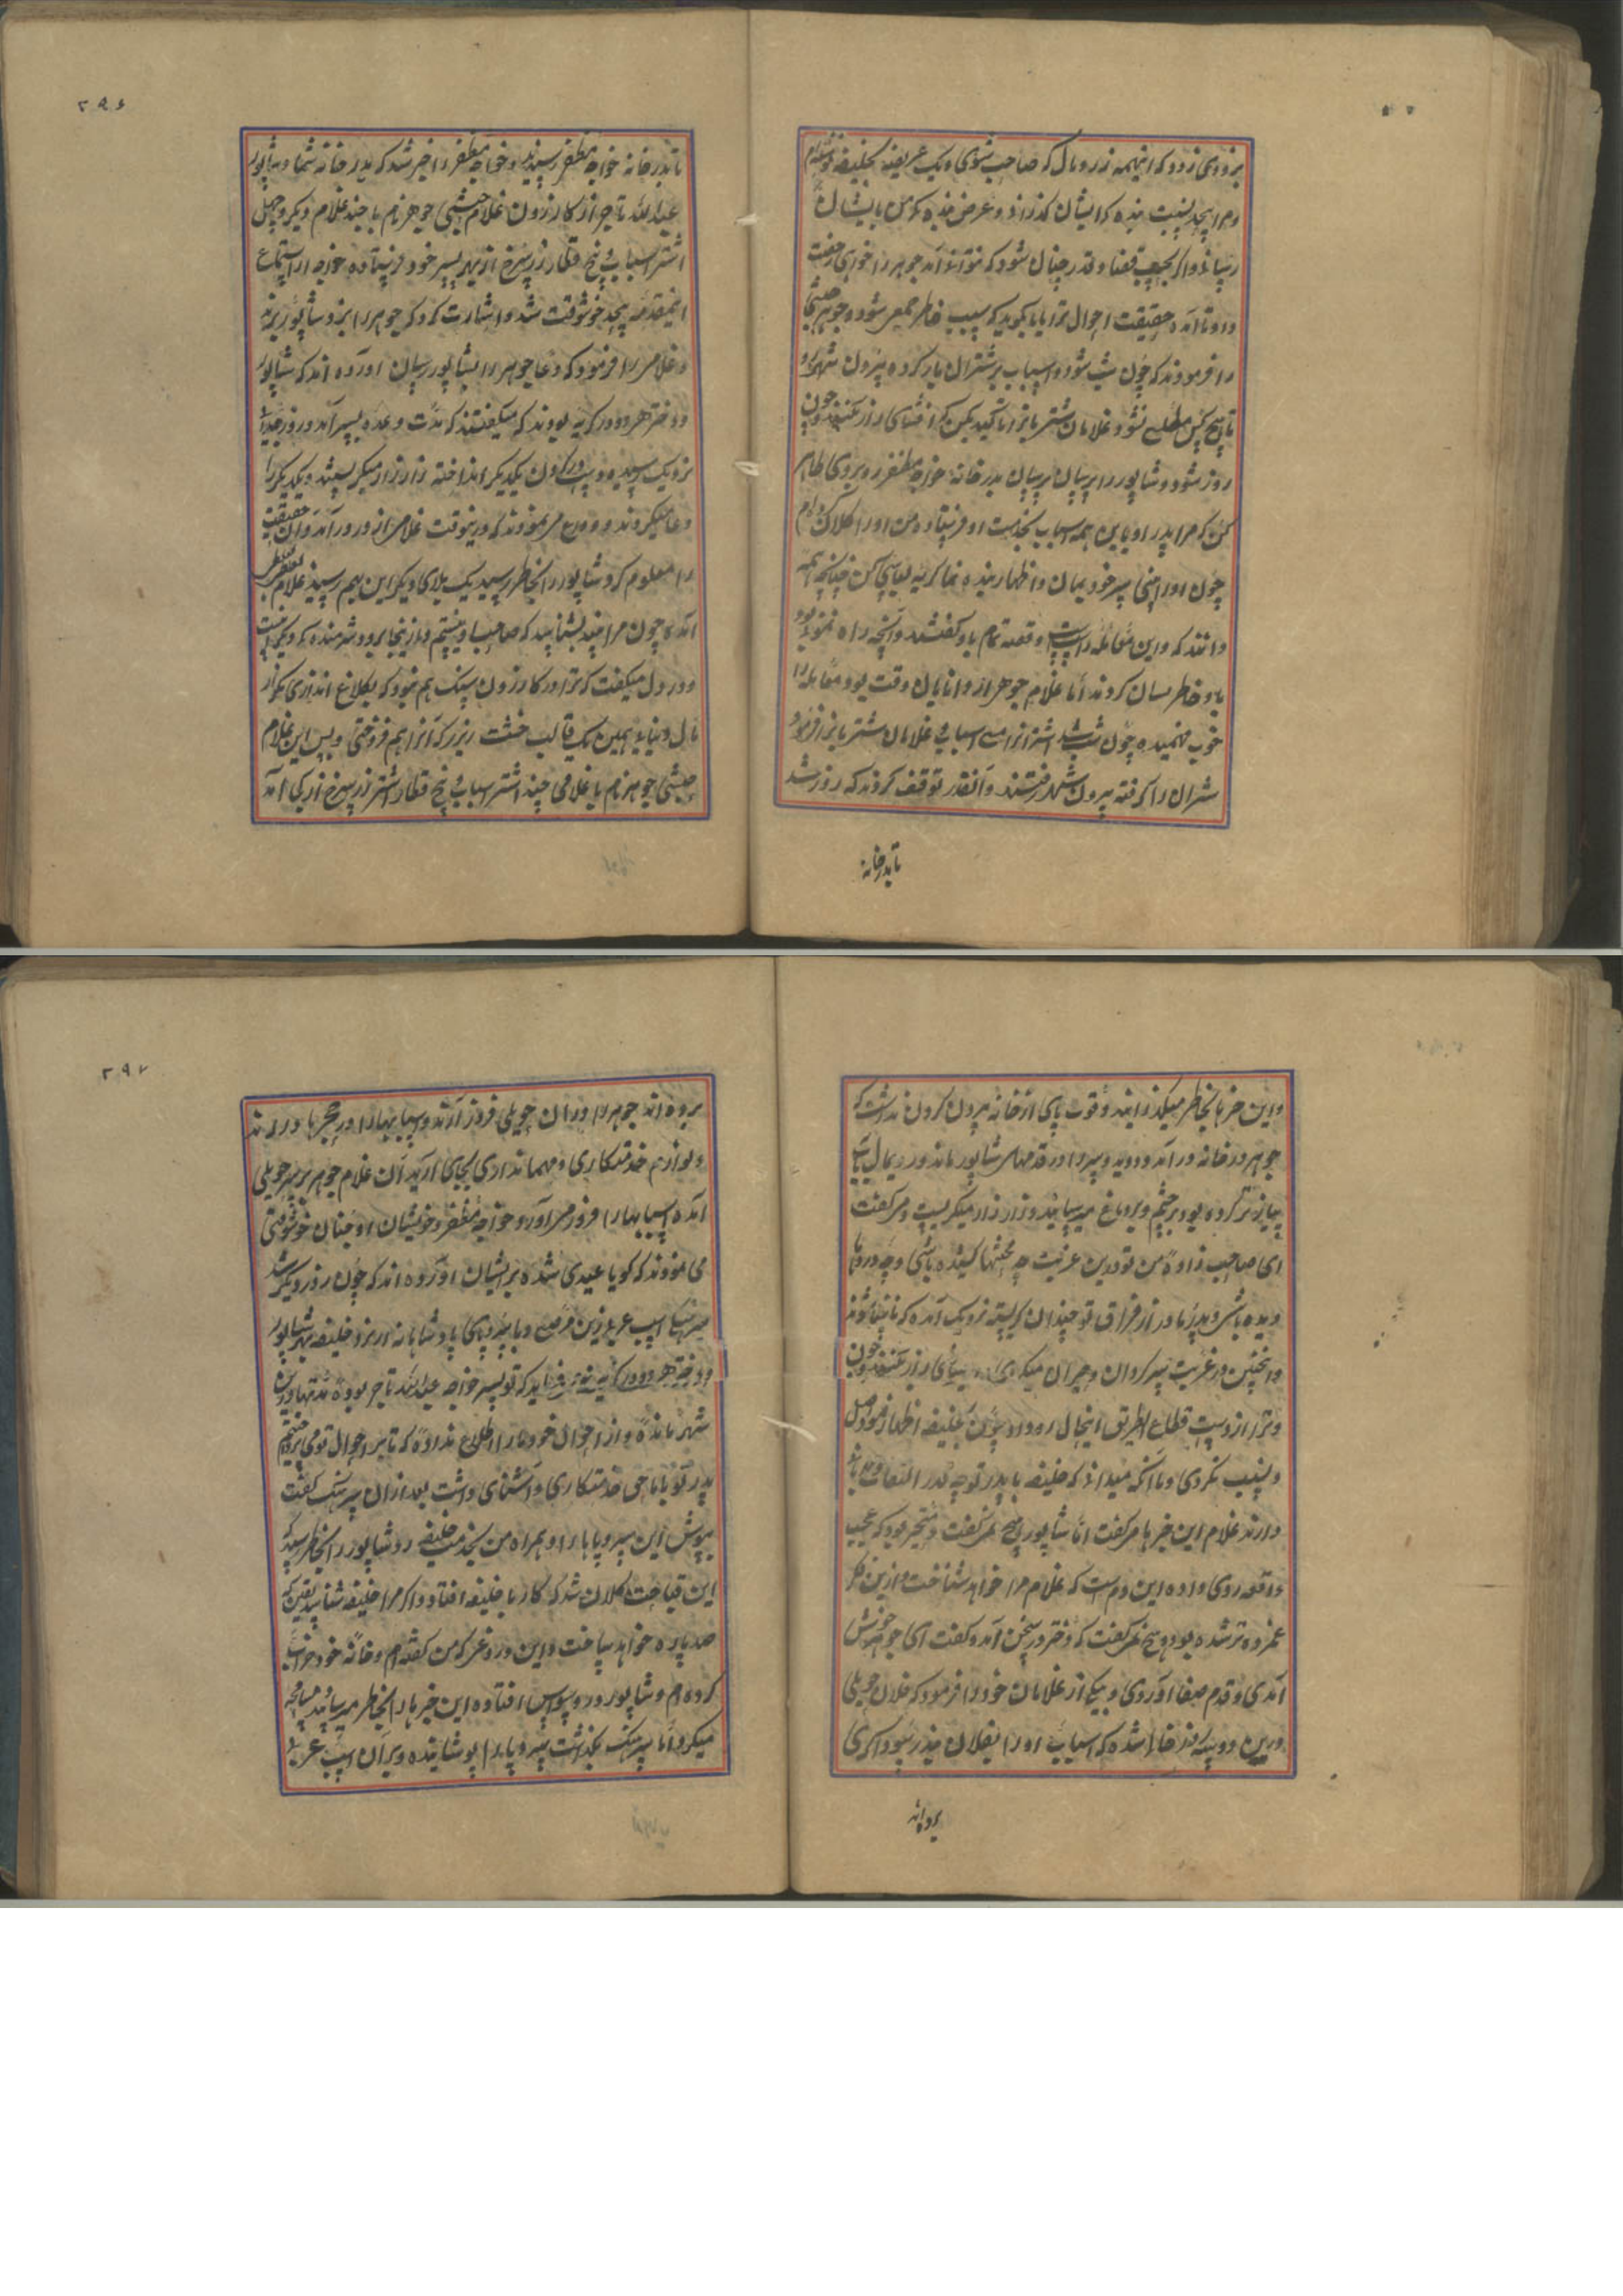 بزودی زود که اینهمه زر و مال که صاحب شوی و یک عریضه بخلیفه نوشته ام
و مرا بچد بنسبت بنده که ایشان گذراند و عرض بنده که من بایشان
رساند و اگر بحسب قضا و قدر چنان شود که نتواند آمد جوهر را خواهی رخصت
داد تا آمده حقیقت احوال ترا بما بگوید که سبب خاطر جمعی شود و جوهر حبشی
را فرمودند که چون شب شود و اسباب بر شتران بار کرده بیرون شهر رو
تا هیچ کس مطلع نشود و غلامان شتر بانرا تاکید بکن که افشای راز نکنند و چون
روز شود و شاپور را پرسان پرسان بدر خانه خواجه مظفر رو بروی ظاهر
کن که مرا پدر او با این همه اسباب بخدمت او فرستاده من او را کلان کرده ام
چون او را بینی سر خود بمان و اظهار بنده نما گریه بسیاری کن چنانچه همه
دانند که این مقامله راست است و قصه تمام باو گفتند و آنچه راه نمودن بود
باو خاطر نسان کردند اما غلام جوهر از دانایان وقت بود مقامله را
خوب فهمیده چون شب شد اشترانرا مع اسباب و غلامان شتر بانرا فرمود
شتران را گرفته بیرون شهر رفتند و آنقدر توقف کردند که روز شد
تا بدر خانه
۲۹۶
تا بدر خانه خواجه مظفر رسید و خواجه مظفر را خبر شد که بدر خانه شما و شاپور
عبدالله تاجر از کازرون غلام حبشی جوهر نام با چند غلام دیگر و چهل
اشتر اسباب و پنج قطار زر سرخ از بهر پسر خود فرستاده خواجه از استماع
اینمقدمه بیحد خوشوقت شد و اشارت کرد که جوهر را نزد شاپور برند
و غلامی را فرمود که دعا جوهر را بشاپور رسان آورده اند که شاپور
و دختر هر دو در گریه بودند که میگفتند که مدت وعده بسر آمد و روز جدایی
نزدیک رسید و دست در گردن یکدیگر انداخته زار زار میگریستند و یکدیگر را
دعا میکردند و وداع می نمودند که درینوقت غلام از در درآمد و آن حقیقت
را معلوم کرد شاپور را بخاطر رسید یک بلای دیگر این بهم رسید غلام مظفر
آمدی چون مرا بیند بشناسد که صاحب او نیستم و باز زینجا برود شرمنده که دیگر است
و در دل میگفت که ترا در کازرون سنگ هم نبود که بکلاغ اندازی بگذار
مال دنیا به همین یک قالب خشت زر زر که آنرا هم فروختی و پس این غلام
حبشی جوهر نام با غلامی چند اشتر اسباب و پنج قطار اشتر زر سرخ از کجا آمد
و این خبر بخاطر میگذرانید و قوت پای از خانه بیرون کردن نداشت که
جوهر در خانه درآمد و دوید و سر در قدمهای شاپور ماند و رومال بآب
پیاز تر کرده بود بر چشم و بر دماغ میرسانید و زار زار میگریست و میگفت
ای صاحب زاده من تو درین غربت چه محنتها کشیده باشی و چه دردها
دیده باشی و پدر و مادر از فراق تو چندان گریسته نزدیک آمده که نابینا شوند
و اینچنین در غربت سر گردان و حیران میگردی
و ترا از دست قطاع الطریق اینحال رو داد چون بخلیفه اظهار خود اصل
و نسب نکردی و ما آنکه میداند که خلیفه با پدر تو چه قدر التفات و مهربانی
دارند غلام این خبرها میگفت اما شاپور هیچ نمی گفت و متحیر بود که عجب
واقعه روی داده این دم است که غلام مرا خواهد شناخت و ازین فکر
غمزده تر شده بود و هیچ نمی گفت که دختر در سخن آمد و گفت ای جوهر خوش
آمدی و قدم صفا آوردی و یکی از غلامان خود را فرمود که فلان حویلی
درین دو سه روز خالی شده که اسباب او را بفلان بندر بسوداگری
برده اند
۲۹۷
برده اند جوهر را در آن حویلی فرود آرند و اسبابها را در حجرها درآرند
و لوازم خدمتکاری و مهمانداری بجای آرید آن غلام جوهر بر سر حویلی
آمده اسبابها را فرود می آورد و خواجه مظفر و خویشان او چنان خوشوقتی
می نمودند که گویا عیدی شده بر ایشان آورده اند که چون روز دیگر شد
سرهنگ اسب عربی زین مرصع و با سر و پای پادشاهانه از نزد خلیفه بهر شاپور
و دختر هر دو در گریه که تو پسر خواجه عبدالله تاجر بوده مدتها درین
شهر مانده و از احوال خود ما را اطلاع نداده که تا سر احوال تو می پرداختیم
پدر تو با ما حق خدمتکاری و آشنائی داشت بعد از آن سرهنگ گفت
بپوش این سر و پاها را و همراه من بخدمت خلیفه رو شاپور را بخاطر رسید که
این قباحت کلان شد که کار با خلیفه افتاد و اگر مرا خلیفه شناسد یقین که
صد پاره خواهد ساخت و این دروغی که من گفته ام و خانه خود خراب
کرده ام و شاپور در وسواس افتاده این خبرها را بخاطر میرسانید
میکرد اما سرهنگ نگذاشت سر و پا را پوشانیده و بر آن اسب عربی